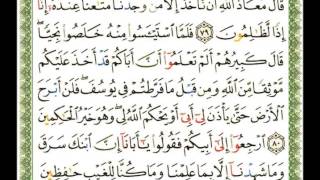 قَالَ مَعَاذَ ٱللَّهِ أَن نَّأۡخُذَ إِلَّا مَن وَجَدۡنَا مَتَٰعَنَا عِندَهُۥٓ إِنَّآ
إِذٗا لَّظَٰلِمُونَ ٧٩ فَلَمَّا ٱسۡتَيۡـَٔسُواْ مِنۡهُ خَلَصُواْ نَجِيّٗاۖ
قَالَ كَبِيرُهُمۡ أَلَمۡ تَعۡلَمُوٓاْ أَنَّ أَبَاكُمۡ قَدۡ أَخَذَ عَلَيۡكُم
مَّوۡثِقٗا مِّنَ ٱللَّهِ وَمِن قَبۡلُ مَا فَرَّطتُمۡ فِي يُوسُفَۖ فَلَنۡ أَبۡرَحَ
ٱلۡأَرۡضَ حَتَّىٰ يَأۡذَنَ لِيٓ أَبِيٓ أَوۡ يَحۡكُمَ ٱللَّهُ لِيۖ وَهُوَ خَيۡرُ ٱلۡحَٰكِمِينَ
٨٠ ٱرۡجِعُوٓاْ إِلَىٰٓ أَبِيكُمۡ فَقُولُواْ يَٰٓأَبَانَآ إِنَّ ٱبۡنَكَ سَرَقَ
وَمَا شَهِدۡنَآ إِلَّا بِمَا عَلِمۡنَا وَمَا كُنَّا لِلۡغَيۡبِ حَٰفِظِينَ